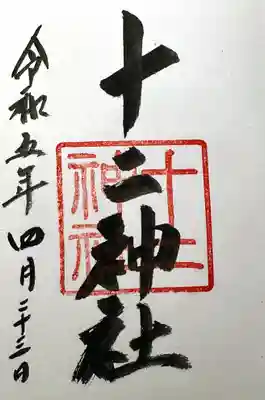 十二神社
令和五年四月二十三日
十二神社